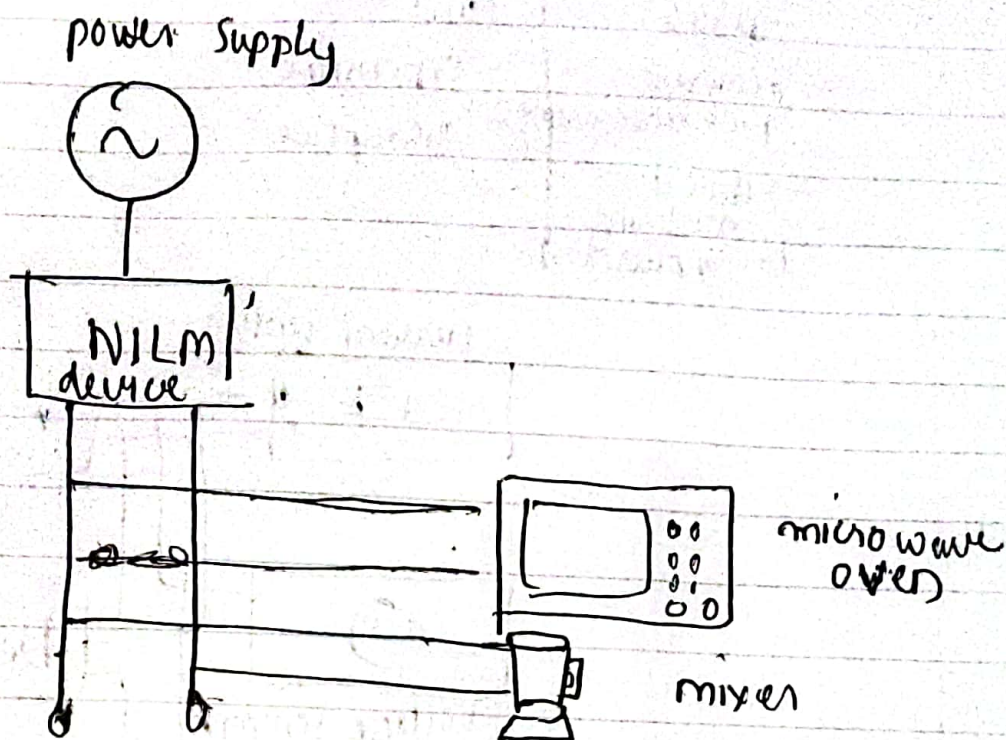 power supply
NILM
device
microwave
oven
mixer